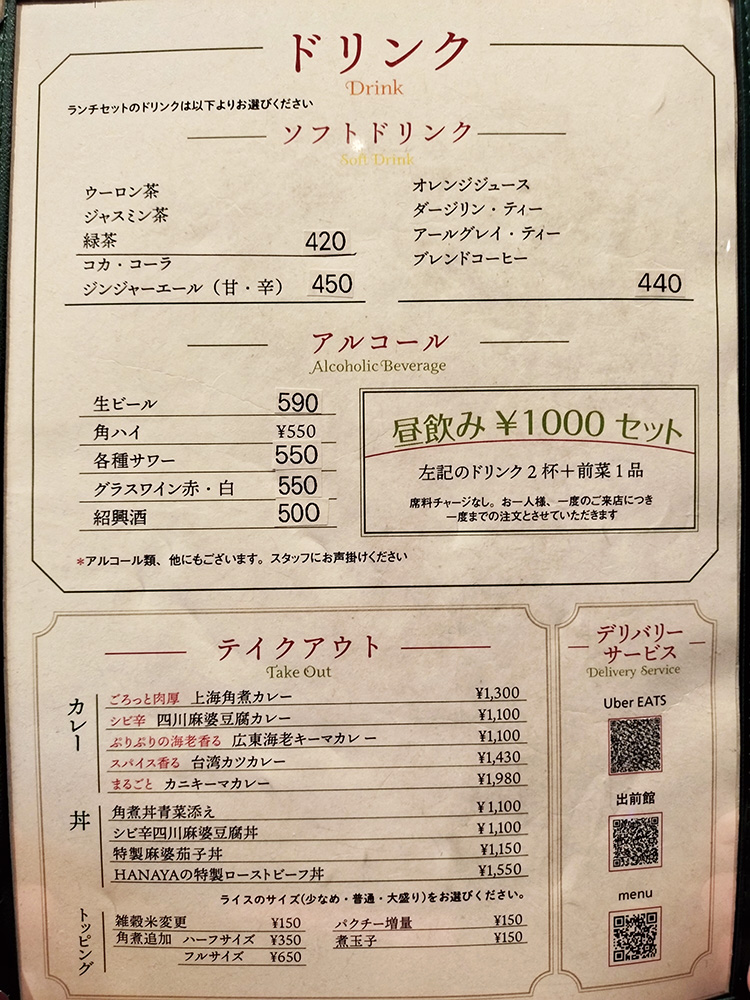 ドリンク
Drink
ランチセットのドリンクは以下よりお選びください
ソフトドリンク
Soft Drink
ウーロン茶
ジャスミン茶
緑茶 420
コカ・コーラ
ジンジャーエール（甘・辛） 450
オレンジジュース
ダージリン・ティー
アールグレイ・ティー
ブレンドコーヒー
440
アルコール
Alcoholic Beverage
生ビール 590
角ハイ ¥550
各種サワー 550
グラスワイン赤・白 550
紹興酒 500
昼飲み ¥1000 セット
左記のドリンク２杯＋前菜１品
席料チャージなし。お一人様、一度のご来店につき
一度までの注文とさせていただきます
*アルコール類、他にもございます。スタッフにお声掛けください
テイクアウト
Take Out
カレー
ごろっと肉厚 上海角煮カレー ¥1,300
シビ辛 四川麻婆豆腐カレー ¥1,100
ぷりぷりの海老香る 広東海老キーマカレー ¥1,100
スパイス香る 台湾カツカレー ¥1,430
まるごと カニキーマカレー ¥1,980
丼
角煮丼青菜添え ¥1,100
シビ辛四川麻婆豆腐丼 ¥1,100
特製麻婆茄子丼 ¥1,150
HANAYAの特製ローストビーフ丼 ¥1,550
ライスのサイズ(少なめ・普通・大盛り)をお選びください。
トッピング
雑穀米変更 ¥150
角煮追加 ハーフサイズ ¥350
フルサイズ ¥650
パクチー増量 ¥150
煮玉子 ¥150
デリバリー
サービス
Delivery Service
Uber EATS
出前館
menu